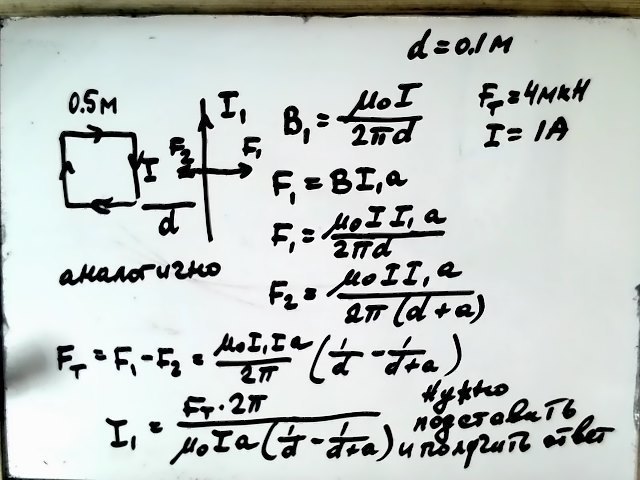 d = 0.1м
0.5м
I₁
F₂
F₁
I
d
B₁ = μ₀I / 2πd
Fт = 4мкН
I = 1А
F₁ = BI₁a
F₁ = μ₀II₁a / 2πd
аналогично
F₂ = μ₀II₁a / 2π(d+a)
Fт = F₁ - F₂ = μ₀I₁Ia / 2π (1/d - 1/d+a)
I₁ = Fт·2π / μ₀Ia(1/d - 1/d+a)
нужно
подставить
и получить ответ